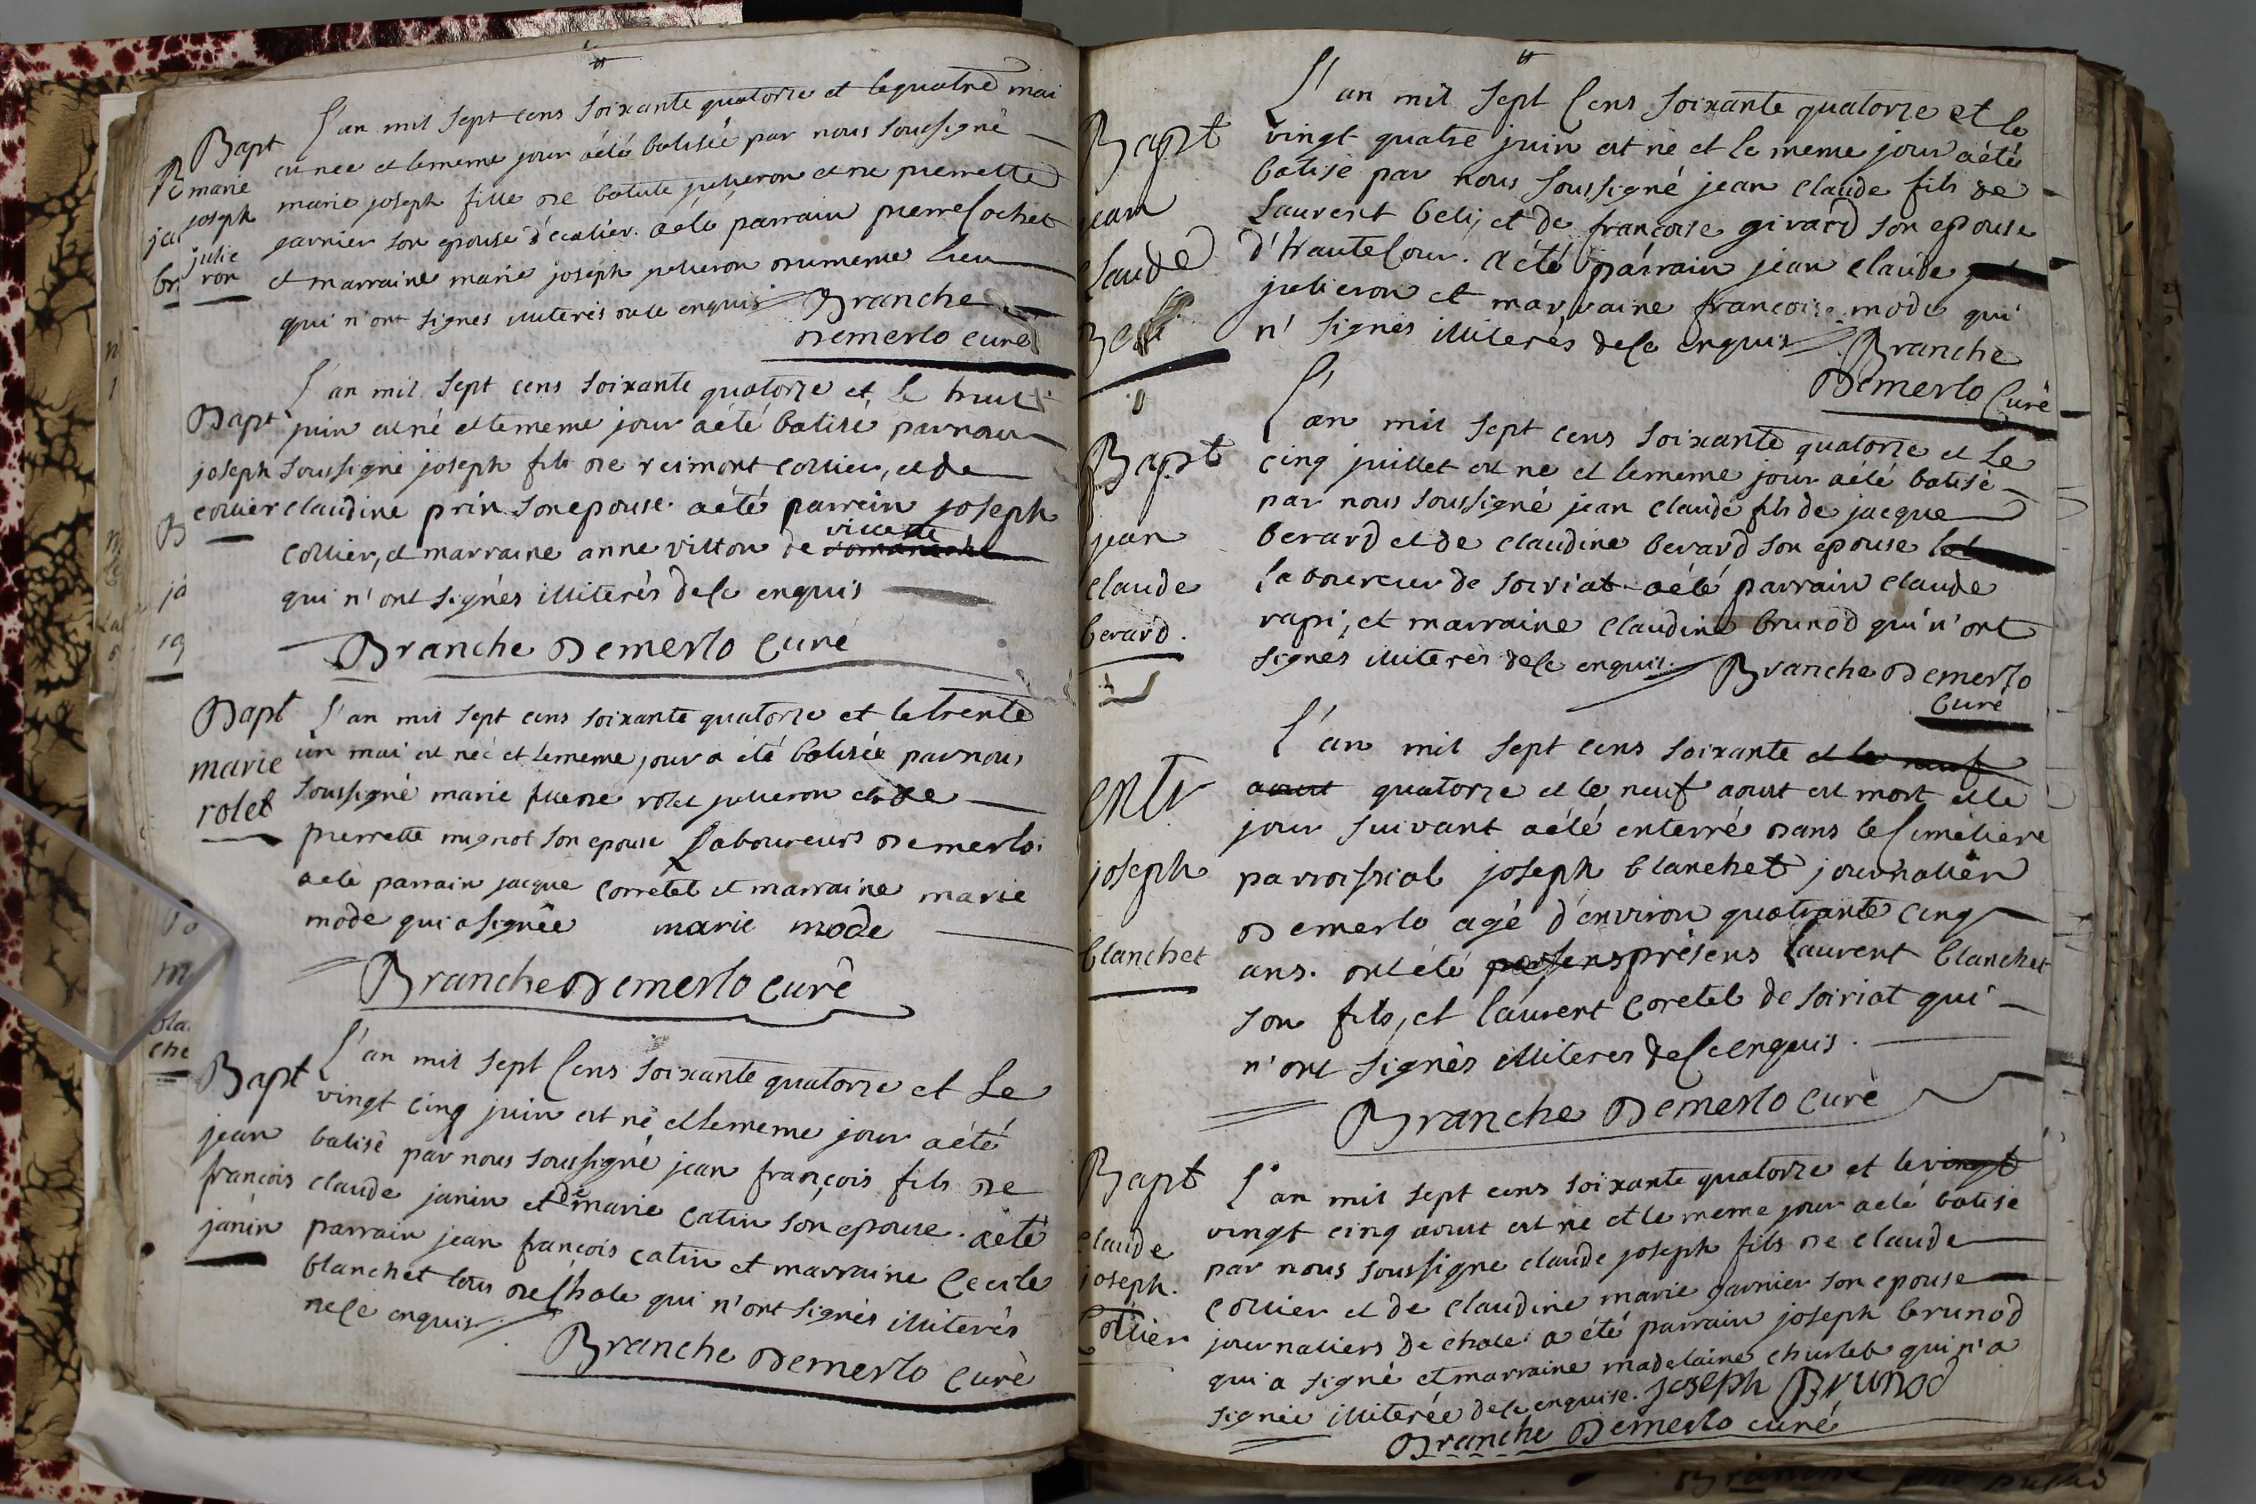 Bapt
marie
joseph
julie
ron
L'an mil sept cens soixante quatorze et le quatre mai
est née et le meme jour a été batisée par nous soussigné
marie joseph fille de batiste julieron et de pierrette
garnier son epouse a été parrain pierre Cochet
et marraine marie joseph julieron du meme lieu
qui n'ont signés illiterés de ce enquis Branche
Demerlo curé
Bapt
joseph
collier
L'an mil sept cens soixante quatorze et le huit
juin est né et le meme jour a été batisé par nous
soussigné joseph fils de reimont collier, et de
claudine prin son epouse. a été parrain joseph
villette
collier, et marraine anne vitton de
qui n'ont signés illiterés de ce enquis
Branche Demerlo Curé
Bapt
marie
rolet
L'an mil sept cens soixante quatorze et le trente
un mai est née et le meme jour a été batisée par nous
soussigné marie fille de rolet julieron et de
pierrette mignot son epouse Laboureurs Demerlo.
a été parrain jacque corretet et marraine marie
mode qui a signée marie mode
Branche Demerlo curé
Bapt
jean
françois
janin
L'an mil sept Cens soixante quatorze et Le
vingt cinq juin est né et le meme jour a été
batisé par nous soussigné jean françois fils de
claude janin et de marie catin son epouse. a été
parrain jean françois catin et marraine Cecile
blanchet tous de Chale qui n'ont signés illiterés
de ce enquis
Branche Demerlo Curé
Bapt
jean
claude
Beli
L'an mil sept Cens soixante quatorze et le
vingt quatre juin est né et le meme jour a été
batisé par nous soussigné jean claude fils de
Laurent beli, et de françoise girard son epouse
d'hautecour. a été parrain jean claude
julieron et marraine françoise mode qui
n' signés illiterés de ce enquis Branche
Demerlo Curé
Bapt
jean
claude
berard.
L'an mil sept cens soixante quatorze et Le
cinq juillet est né et le meme jour a été batisé
par nous soussigné jean claude fils de jacque
berard et de claudine berard son epouse
laboureur de soiriat. a été parrain claude
rapi, et marraine claudine brunod qui n'ont
signés illiterés de ce enquis. Branche Demerlo
Curé
entr
joseph
blanchet
L'an mil sept cens soixante et le neuf
aout quatorze et le neuf aout est mort et le
jour suivant a été enterré dans le Cimetiere
parroissial joseph blanchet journalier
Demerlo agé d'environ quatrante cinq
ans. ont été présens laurent blanchet
son fils, et laurent coretet de soiriat qui
n'ont signés illiteres de ce enquis.
Branche Demerlo curé
Bapt
claude
joseph.
Collier
L'an mil sept cens soixante quatorze et le vingt
vingt cinq aout est né et le meme jour a été batisé
par nous soussigne claude joseph fils de claude
collier et de claudine marie garnier son epouse
journaliers de chale a été parrain joseph brunod
qui a signé et marraine madelaine churlet qui n'a
signée illiterée de ce enquise. joseph Brunod
Branche Demerlo curé